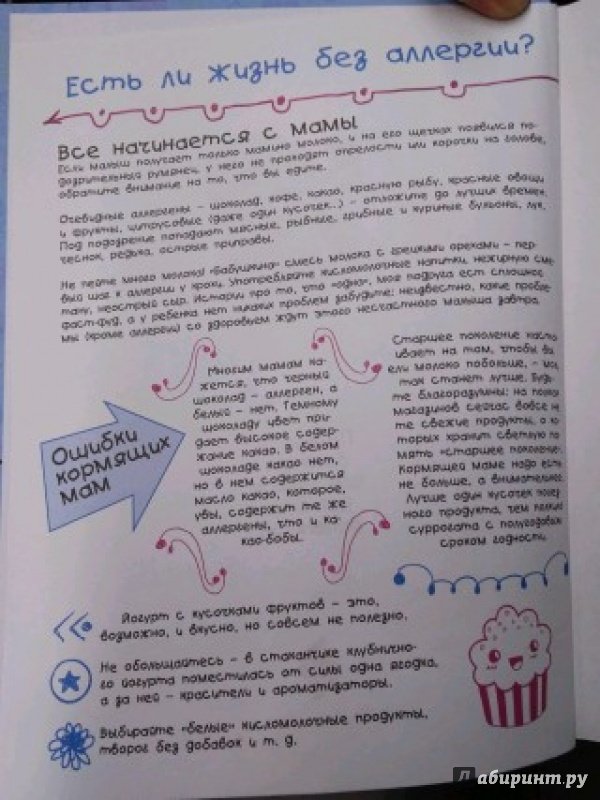 Есть ли жизнь без аллергии?
Все начинается с мамы
Если малыш получает только мамино молоко, и на его щечках появился по-
дозрительный румянец, у него не проходят опрелости или корочки на голове,
обратите внимание на то, что вы едите.
Очевидные аллергены – шоколад, кофе, какао, красную рыбу, красные овощи
и фрукты, цитрусовые (даже один кусочек...) – отложите до лучших времен.
Под подозрение попадают мясные, рыбные, грибные и куриные бульоны, лук,
чеснок, редька, острые приправы.
Не пейте много молока! «Бабушкина» смесь молока с грецкими орехами – пер-
вый шаг к аллергии у крохи. Употребляйте кисломолочные напитки, нежирную сме-
тану, неострый сыр. Истории про то, что «одна моя подруга ест сплошное
фаст-фуд, а у ребенка нет никаких проблем забудьте: неизвестно, какие пробле-
мы (кроме аллергии) со здоровьем ждут этого несчастного малыша завтра.
Ошибки
кормящих
мам
Многим мамам ка-
жется, что черный
шоколад – аллерген, а
белый – нет. Темному
шоколаду цвет при-
дает высокое содер-
жание какао. В белом
шоколаде какао нет,
но в нем содержится
масло какао, которое,
увы, содержит те же
аллергены, что и ка-
као-бобы.
Старшее поколение наста
ивает на том, чтобы вы
ели молоко побольше, –
так станет лучше. Будь-
те благоразумны: на полках
магазинов сейчас вовсе не
те свежие продукты, о ко-
торых хранит светлую па-
мять «старшее поколение».
Кормящей маме надо есть
не больше, а внимательнее.
Лучше один кусочек
ного продукта, чем
суррогата с полугодовым
сроком годности.
Йогурт с кусочками фруктов – это,
возможно, и вкусно, но совсем не полезно.
Не обольщайтесь – в стаканчике клубнично-
го йогурта поместилась от силы одна ягодка,
а за ней – красители и ароматизаторы.
Выбирайте «белые» кисломолочные продукты,
творог без добавок и т. д.
Лабиринт.ру